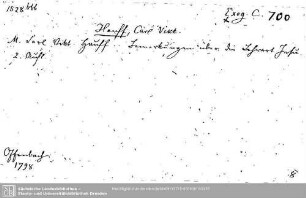 1828 666
Exeg. C. 700
Hauff, Carl Vikt.
M. Carl Vikt Hauff Bemerkungen über die Lehrart Jesu
2. Aufl
Offenbach
1798
8
Sächsische Landesbibliothek -
Staats- und Universitätsbibliothek Dresden